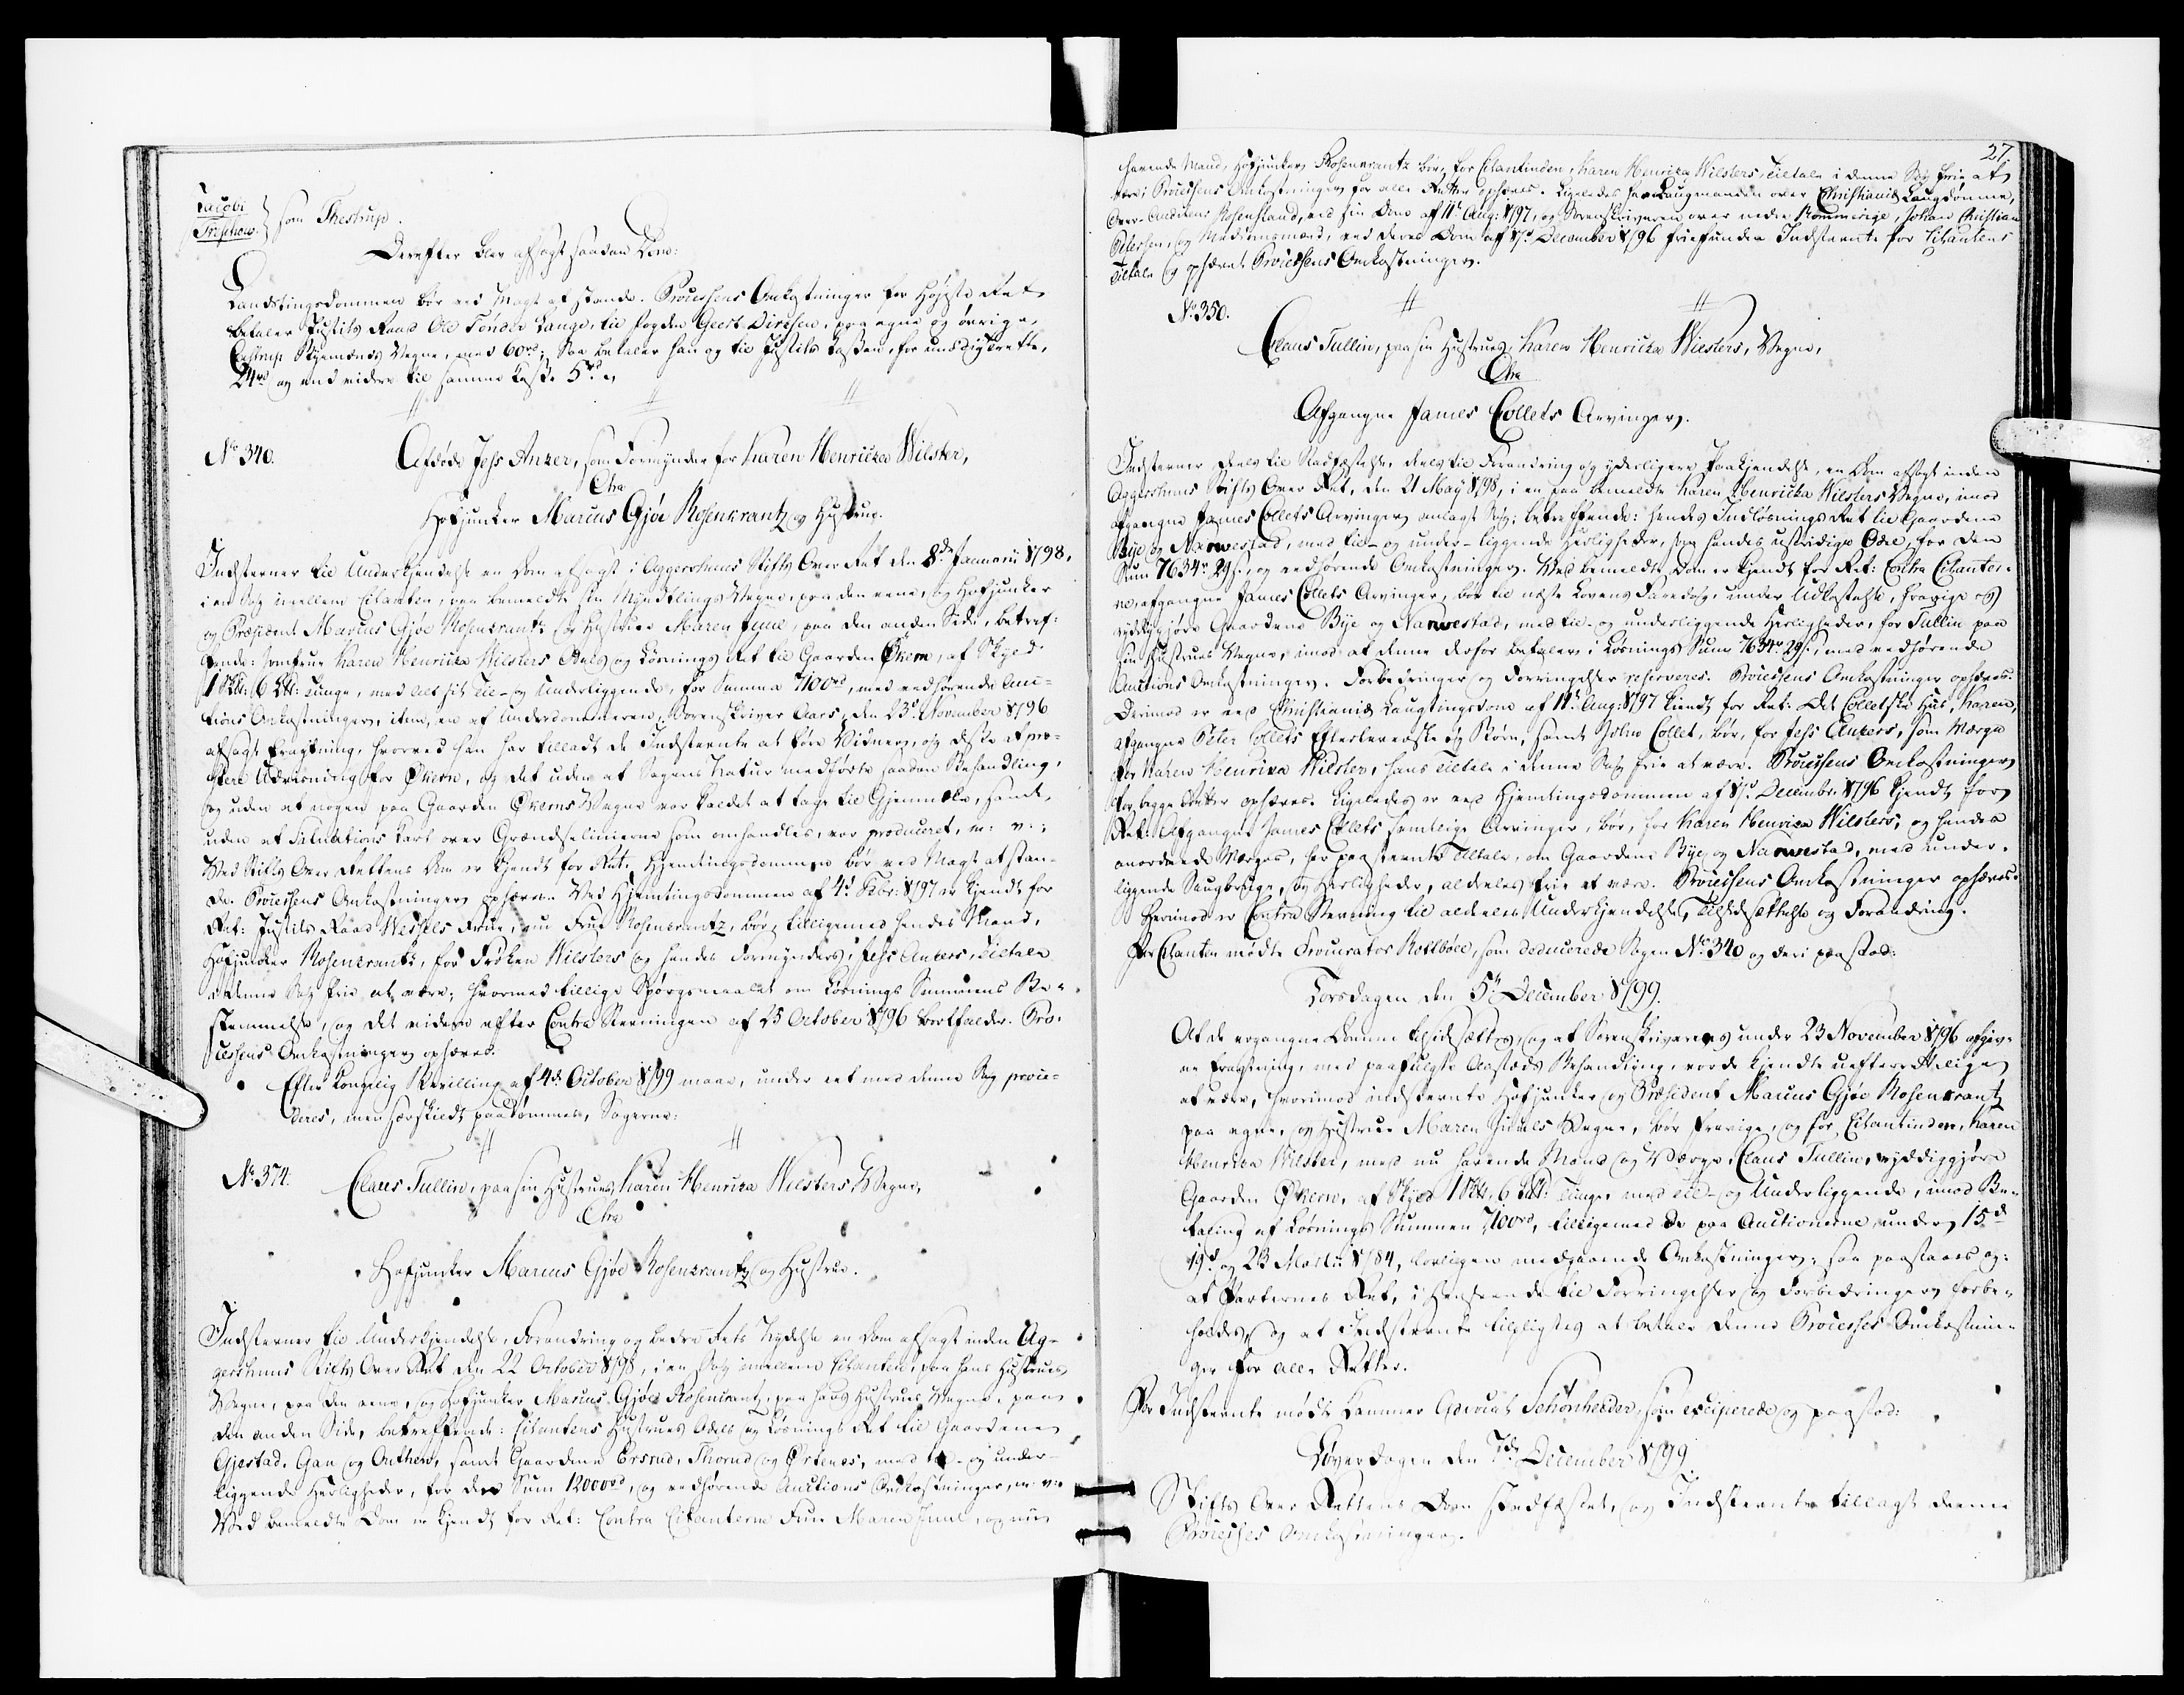 Jacobi
Treschow } som Thestrup.
Derefter blev afsagt saadan Dom:
Landstingsdommen bør ved Magt at stande. Processens Omkostninger for Høyste Ret
betaler Justits Raad Ole Tønder Lange, til Fogden Geert Dirchsen, paa egne og øvrige
Mænds Vegne, med 60rd; Saa betaler han og til Justits Cassen, for unødig trette,
24rd og end videre til samme Casse 5rd.
No 340. Afdøde Jess Anker, som Formynder for Karen Henricka Wilster,
Ctra
Hofjunker Marcus Gjøe Rosenkrantz og Hustrue.
Indstevner til Underkjendelse en Dom afsagt i Aggershuus Stifts Over Ret den 8de Januarii 1798,
i en Sag imellem Citanten, paa bemeldte sin Myndtlings Vegne, paa den eene, og Hofjunker
og Præsident Marcus Gjøe Rosenkrantz og Hustrue Maren Juul, paa den anden Side, betref-
fende: Jomfrue Karen Henricka Wilsters Odels og Løsnings Ret til Gaarden Økern, af Skyld
1 Skd: 6 Lld: Tunge, med alt sit Til- og Underliggende, for Summa 7100rd, med vedhørende Auc-
tions Omkostninger, item, en af Underdommeren, Sorenskriver Aars, den 23de November 1796
afsagt Eragtning, hvorved han har tilladt de Indstevnte at føre Vidner, og
Udviisning for Økern, og det uden at Sagens Natur medførte saadan Behandling,
og uden at nogen paa Gaarden Økerns Vegne var kaldet at tage til Gjenmæle, samt,
uden at Situations Cart over Grændselinierne som omhandles, var produceret, m: v:;
Ved Stifts Over Rettens Dom er kjendt for Ret: Hjemtingsdommen bør ved Magt at stan-
de. Processens Omkostninger ophæves. Ved Hjemtingsdommen af 4de Febr: 1797 er kjendt for
Ret: Justits Raad Wessels Frue, nu Frue Rosenkrantz, bør, tilligemed hendes Mand,
Hofjunker Rosenkrantz, for Frøken Wilsters og hendes Formynders, Jess Ankers, Tiltale
i denne Sag frie at være; hvormed tillige Spørgsmaalet om Løsnings Summens Be-
stemmelse, og det videre efter Contra Stevningen af 25 October 1796 bortfalder. Pro-
cessens Omkostninger ophæves.
Efter Kongelig Bevilling af 4de October 1799 maae, under eet med denne Sag proce-
deres, men særskildt paadømmes, Sagerne:
No 374. Claus Tullin, paa sin Hustrues Karen Henrica Wilsters Vegne,
Ctra
Hofjunker Marcus Gjøe Rosenkrantz og Hustrue.
Indstevner til Underkjendelse, Forandring og bedre Rets Nydelse en Dom afsagt inden Ag-
gershuus Stifts Over Ret den 22 October 1798, i en Sag imellem Citanten, paa hans Hustrues
Vegne, paa den eene, og Hofjunker Marcus Gjøe Rosenkrantz, paa hans Hustrues Vegne, paa
den anden Side, betreffende: Citantens Hustrues Odels og Løsnings Ret til Gaardene
Gjestad, Gan og Authen, samt Gaardene Ersrud, Thorud og Østenes, med til- og under-
liggende Herligheder, for den Sum 12000rd, og vedhørende Auctions Omkostninger, m: v:
Ved bemeldte Dom er kjendt for Ret: Contra Citanterne Frue Maren Juul, og nu
27
havende Mand, Hofjunker Rosenkrantz bør, for Citantinden, Karen Henrica Wilsters, Tiltale i denne Sag frie at
være; Processens Omkostninger for alle Retter ophæves. Ligeledes har Laugmanden over Christianiæ Laugdømme,
Over-Auditeur Rosenstand, ved sin Dom af 11te Aug: 1797, og Sorenskriveren over nedre Rommerige, Johan Christian
Petersen, og Meddomsmænd, ved deres Dom af 17de December 1796 friefunden Indstevnte for Citantens
Tiltale og ophævet Processens Omkostninger.
No 350.
Claus Tullin, paa sin Hustrues Karen Henricka Wilsters, Vegne,
Ctra
Afgangne James Collets Arvinger.
Indstevner, deels til Stadfæstelse, deels til Forandring og yderligere Paakjendelse, en Dom afsagt inden
Aggershuus Stifts Over Ret, den 21 May 1798, i en paa bemeldte Karen Henricka Wilsters Vegne, imod
afgangne James Collets Arvinger, anlagt Sag, betreffende: hendes Indløsnings Ret til Gaardene
Bye og Narwestad, med til- og under-liggende Herligheder, som hendes ustridige Odel, for den
Sum 7634rd 29s, og vedhørende Omkostninger. Ved bemeldte Dom er kjendt for Ret: Contra Citanter-
ne, afgangne James Collets Arvinger, bør til næste Lovens Faredag, under Udkastelse, fravige og
ryddiggjøre Gaardene Bye og Narwestad, med til- og underliggende Herligheder, for Tullin paa
sin Hustrues Vegne, imod at denne derfor betaler i Løsnings Sum 7634rd 29s, med vedhørende
Auctions Omkostninger. Forbedringer og Forringelser reserveres. Processens Omkostninger ophæves.
Derimod er ved Christianiæ Laugtingsdom af 11te Aug: 1797 kiendt for Ret: Det Colletske Huus, Karen,
afgangne Peter Collets Efterleverske og Børn, samt John Collet, bør, for Jess Ankers, som Værge
for Karen Henrica Wilster, hans Tiltale i denne Sag frie at være. Processens Omkostninger
for begge Retter ophæves. Ligeledes er ved Hjemtingsdommen af 17de Decembr: 1796 kjendt for
Ret: Afgangne James Collets samtlige Arvinger, bør, for Karen Henrica Wilsters, og hendes
anordnede Værges, her paastevnte Tiltale, om Gaardene Bye og Narwestad, med under-
liggende Saugbrug, og Herligheder, aldeles frie at være. Processens Omkostninger ophæves.
Herimod er Contra Stevning til aldeles Underkjendelse, Tilsidesættelse og Forandring.
For Citanten mødte Procurator Rottbøll, som deducerede Sagen No 340 og deri paastod:
Torsdagen den 5te December 1799.
At de ergangne Domme tilsidesættes, og at Sorenskriverens under 23 November 1796 afgiv-
ne Eragtning, med paafulgte Aasteds Behandling, vorde kjendte uefterrettelige
at være, hvorimod indstevnte Hofjunker og Præsident Marcus Gjøe Rosenkrantz
paa egne, og Hustrue Maren Juuls Vegne, bør fravige, og for Citantinden, Karen
Henrica Wilster, med nu havende Mand og Værge, Claus Tullin, ryddiggjøre
Gaarden Økern, af Skyld 1 Skd. 6 Lld: Tunge, med til- og Underliggende, imod Be-
taling af Løsnings Summen 7100rd, tilligemed de paa Auctionerne under 15de
19de og 23 Martii 1784, lovligen medgaaende Omkostninger; saa paastaaes og:
at Parternes Ret, i Henseende til Forringelser og Forbedringer forbe-
holdes, og at Indstevnte tilpligtes at betale denne Processes Omkostnin-
ger for alle Retter.
For Indstevnte mødte Kammer Advocat Schønheyder, som exciperede og paastod:
Løverdagen den 7de December 1799
Stifts Over Rettens Dom stadfæstet, og Indstevnte tillagt denne
Processes Omkostninger.